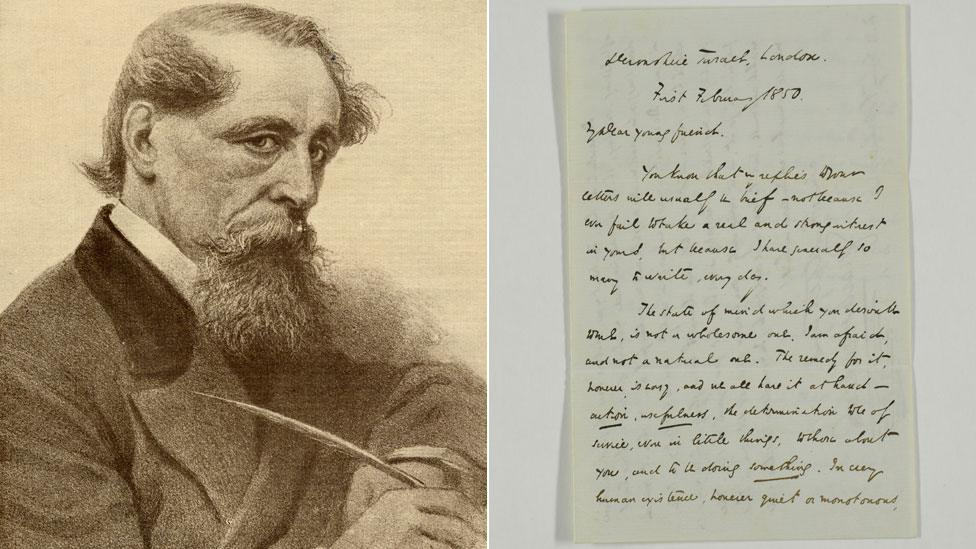 Devonshire Terrace, London.
First February 1850.
My dear young friend.
You know that my replies to your
letters will usually be brief – not because I
ever fail to take a real and strong interest
in yours, but because I have generally so
many to write, every day.
The state of mind which you describe
to me, is not a wholesome one, I am afraid,
and not a natural one. The remedy for it,
however, is easy, and we all have it at hand –
action, usefulness, the determination to be of
service, even in little things, to those about
you, and to be doing something. In every
human existence, however quiet or monotonous,